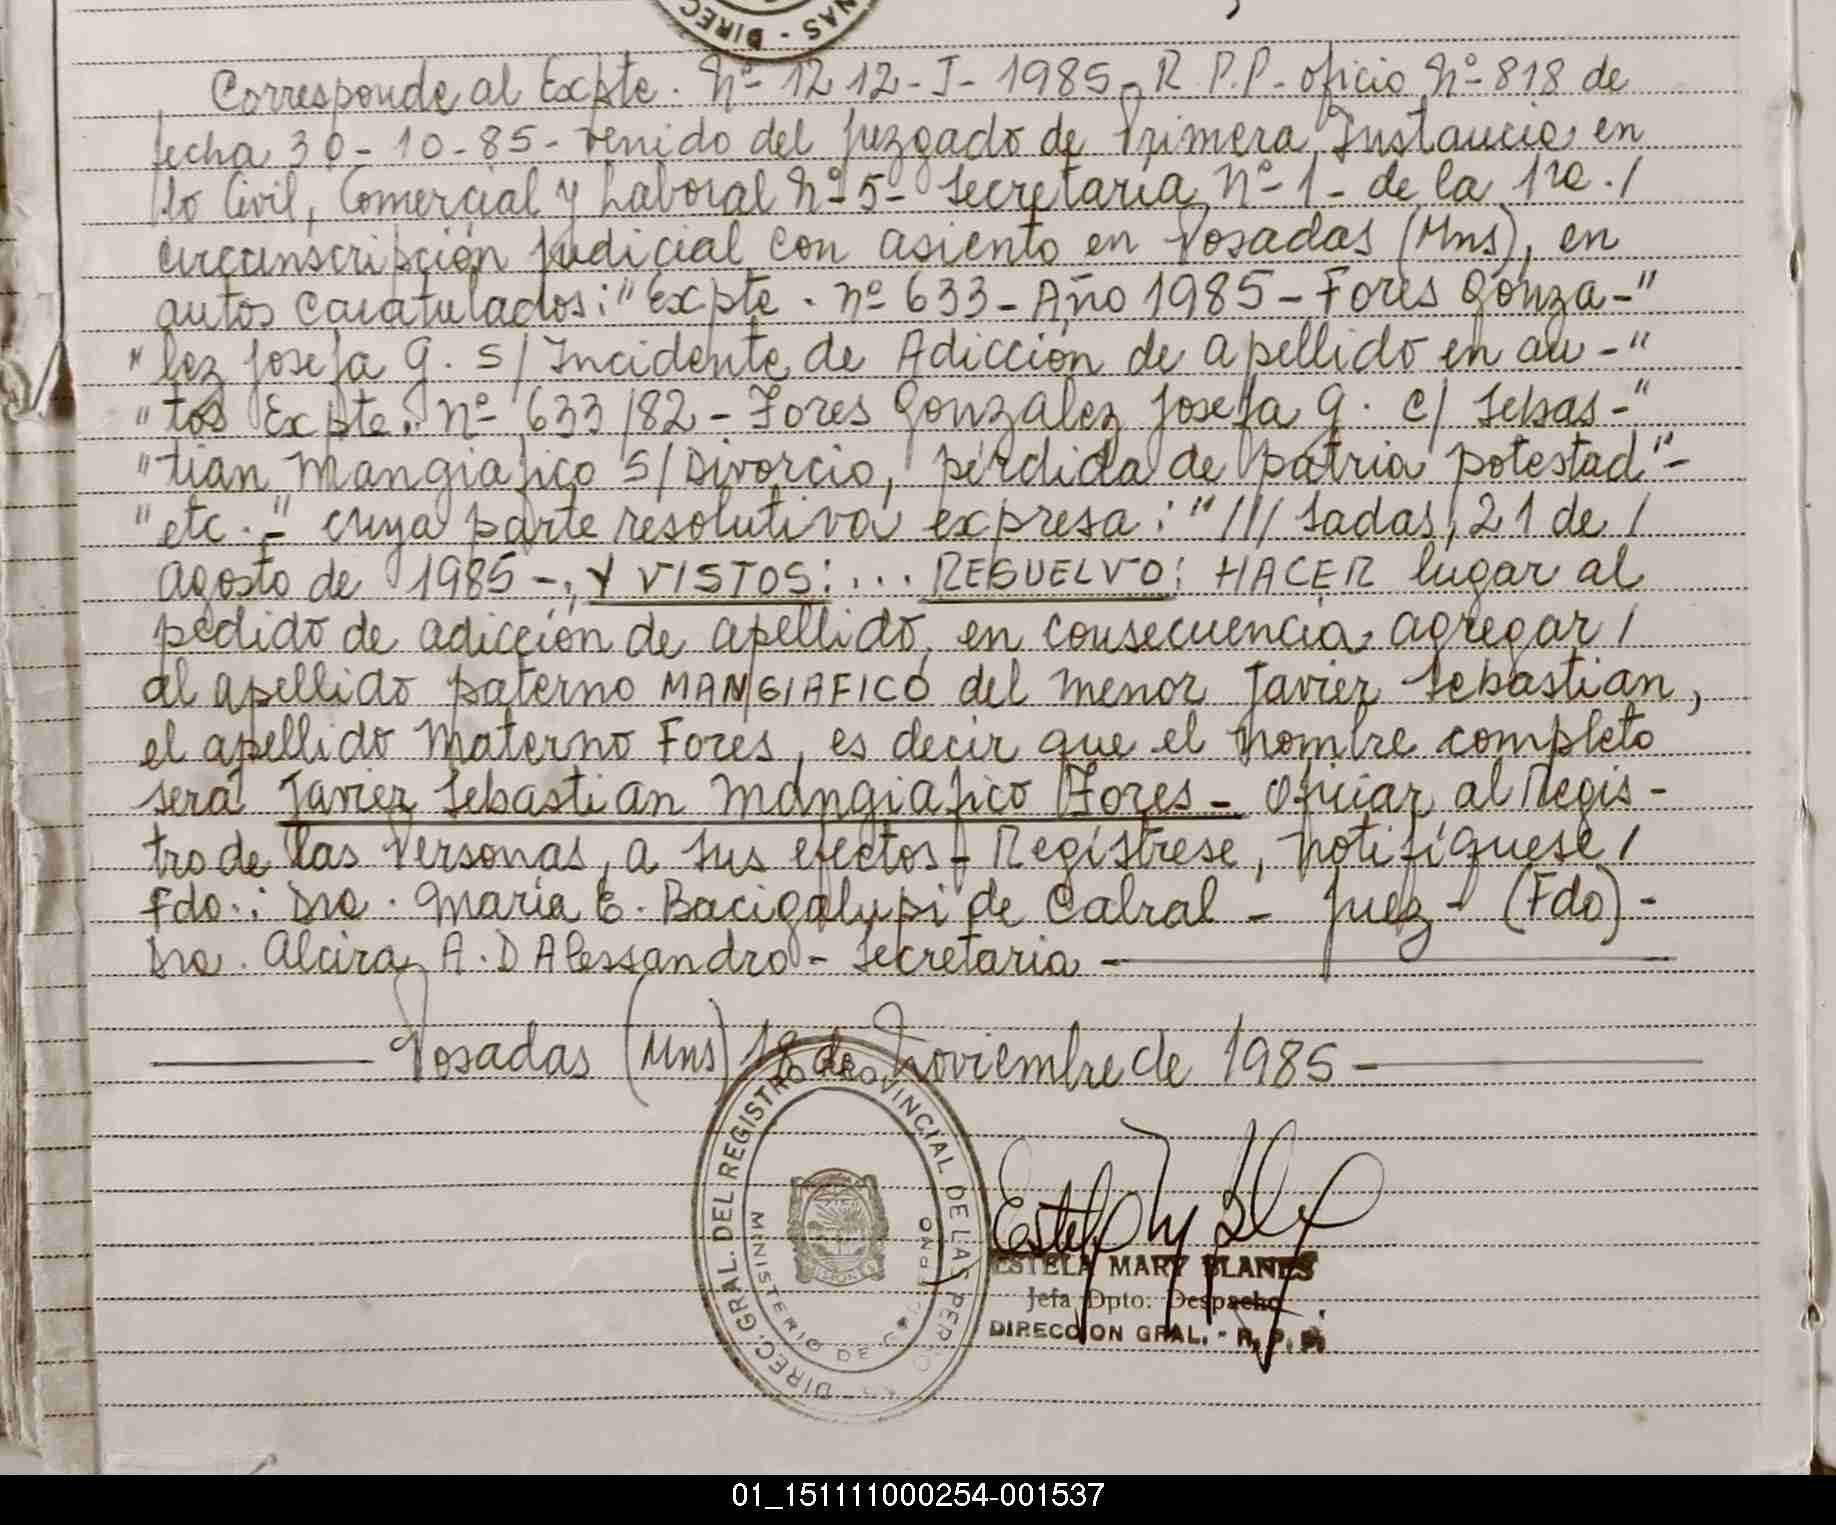 NAS - DIREC
Corresponde al Expte. Nº 1212-J-1985-R.P.P- oficio Nº 818 de
fecha 30-10-85- venido del Juzgado de Primera Instancia en
lo Civil, Comercial y Laboral Nº 5- Secretaría Nº 1- de la 1ra. /
circunscripción Judicial con asiento en Posadas (Mns), en
autos caratulados: "Expte. nº 633-Año 1985-Fores Gonza-"
"lez Josefa G. S/ Incidente de Adicción de apellido en au-"
"tos Expte. nº 633/82- Fores Gonzalez Josefa G. c/ Sebas-"
"tian Mangiafico S/ Divorcio, pérdida de patria potestad"-
"etc.-" cuya parte resolutiva expresa: "/// sadas, 21 de /
agosto de 1985-, Y VISTOS: ... RESUELVO: HACER lugar al
pedido de adicción de apellido, en consecuencia, agregar /
al apellido paterno MANGIAFICO del menor Javier Sebastian,
el apellido Materno Fores, es decir que el nombre completo
será Javier Sebastian Mangiafico Fores- Oficiar al Regis-
tro de las Personas, a sus efectos- Regístrese, notifíquese /
Fdo.: Dra. María E. Bacigalupi de Cabral - Juez - (Fdo)-
Dra. Alcira A. D Alessandro - Secretaria -
Posadas (Mns) 18 de Noviembre de 1985 -
DIREC. GRAL. DEL REGISTRO PROVINCIAL DE LAS PERSO
MINISTERIO DE
MISIONES
ESTELA MARY BLANES
Jefa Dpto. Despacho
DIRECCION GRAL. - R. P. P.
01_151111000254-001537